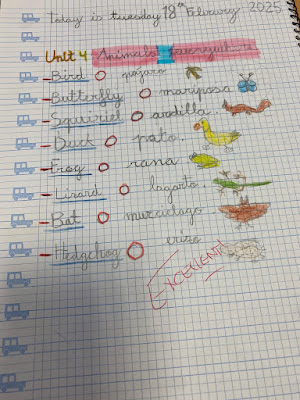 Today is tuesday 18th February 2025
Unit 4 Animals
Bird pájaro
Butterfly mariposa
Squirriel ardilla.
Duck pato.
Frog rana
Lizard lagarto.
Bat murcielago
Hedgehog erizo
EXCELLENT!